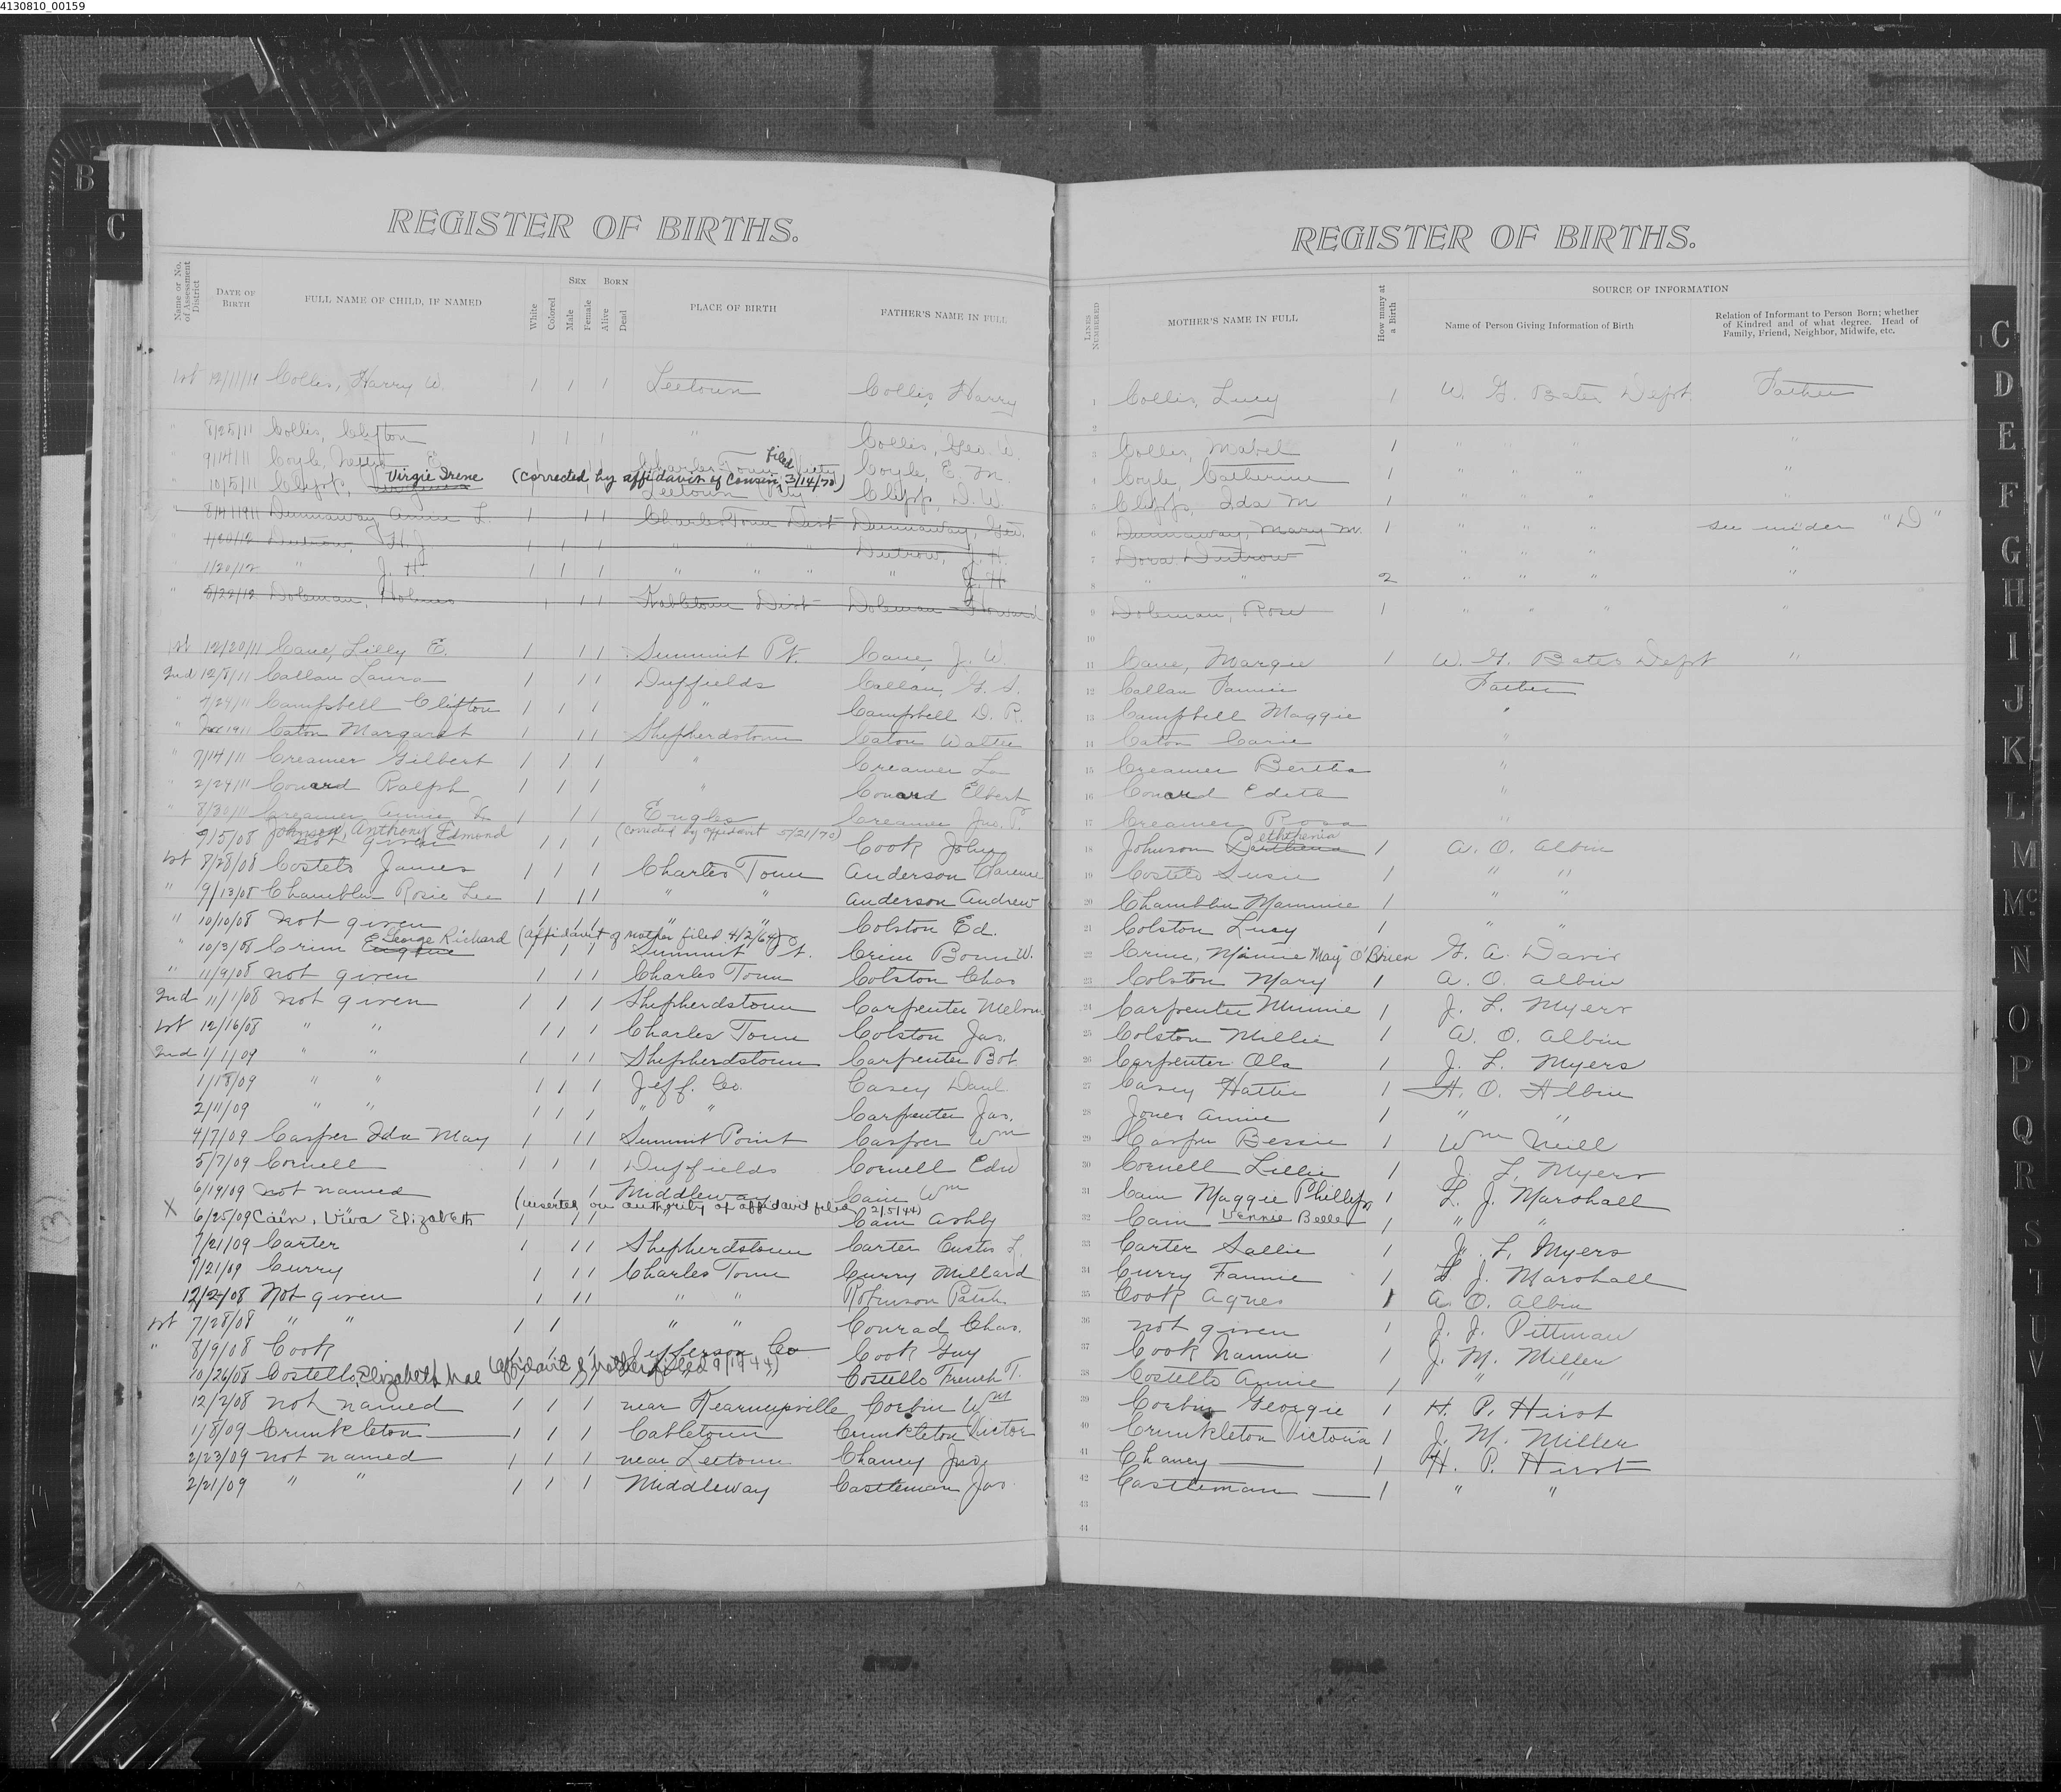 4130810_00159
B
C
REGISTER OF BIRTHS.
Name or No. of Assessment District | DATE OF BIRTH | FULL NAME OF CHILD, IF NAMED | White | Colored | SEX Male Female | BORN Alive Dead | PLACE OF BIRTH | FATHER'S NAME IN FULL
1st 12/11/11 Collis, Harry W. 1 1 1 Leetown Collis, Harry
" 8/25/11 Collis, Clifton 1 1 1 " Collis, Geo. W.
" 9/14/11 Coyle, E. Charles Town Coyle, E. M.
" 10/5/11 Clipp, Virgie Irene (corrected by affidavit of cousin, Filed 3/14/70) Leetown Clipp, D. W.
" Dunnaway Annie L. 1 1 1 Charles Town Dist Dunnaway, Geo.
" 1/20/12 Dutrow, H. J. 1 1 1 " " " Dutrow, J. H.
" 1/20/12 " J. H. 1 1 1 " " " " J. H.
" 8/22/12 Doleman, Holmes 1 1 1 Kabletown Dist Doleman Howard
1st 12/20/11 Cane, Lilly E. 1 1 1 Summit Pt. Cane, J. W.
2nd 12/8/11 Callan Laura 1 1 1 Duffields Callan, G. S.
" 4/24/11 Campbell Clifton 1 1 1 " Campbell D. R.
" 1911 Caton Margaret 1 1 1 Shepherdstown Caton Walter
" 7/14/11 Creamer Gilbert 1 1 1 " Creamer
" 2/24/11 Conard Ralph 1 1 1 " Conard Elbert
" 8/30/11 Creamer Annie 1 1 1 Engles Creamer Jno. T.
9/5/08 Johnson, Anthony Edmond not given 1 1 1 (corrected by affidavit 5/21/70) Cook John
1st 8/28/08 Costelo James 1 1 1 Charles Town Anderson Clarence
" 9/13/08 Chamblin Rosie Lee 1 1 1 " " Anderson Andrew
" 10/10/08 not given 1 1 1 " " Colston Ed.
" 10/3/08 Crim Eugene George Richard (affidavit of mother filed 4/2/64) 1 1 1 Summit Pt. Crim W.
" 11/9/08 not given 1 1 1 Charles Town Colston Chas
2nd 11/1/08 not given 1 1 1 Shepherdstown Carpenter
1st 12/16/08 " " 1 1 1 Charles Town Colston Jas.
2nd 1/1/09 " " 1 1 1 Shepherdstown Carpenter Bot
1/18/09 " " 1 1 1 Jeff. Co. Casey Danl.
2/11/09 " " 1 1 1 " " Carpenter Jas.
4/7/09 Casper Ida May 1 1 1 Summit Point Casper Wm
5/7/09 Cornell 1 1 1 Duffields Cornell Edw
6/19/09 not named 1 1 1 Middleway Cain Wm
X 6/25/09 Cain, Viva Elizabeth (inserted on authority of affidavit filed 2/5/44) 1 1 1 Cain Ashby
7/21/09 Carter 1 1 1 Shepherdstown Carter Custis L.
7/21/09 Curry 1 1 1 Charles Town Curry Millard
12/2/08 Not given 1 1 1 " " Robinson
1st 7/28/08 " " 1 1 " " Conrad Chas.
" 8/9/08 Cook 1 1 1 Jefferson Co Cook Guy
10/26/08 Costello, Elizabeth Mae (affidavit of mother filed 9/18/44) Costello French T.
12/2/08 not named 1 1 1 near Kearneysville Corbin Wm
1/8/09 Crunkleton 1 1 1 Cabletown Crunkleton Victor
2/23/09 not named 1 1 1 near Leetown Chaney Jno.
2/21/09 " " 1 1 1 Middleway Castleman Jas
REGISTER OF BIRTHS.
LINES NUMBERED | MOTHER'S NAME IN FULL | How many at a Birth | SOURCE OF INFORMATION
Name of Person Giving Information of Birth | Relation of Informant to Person Born; whether of Kindred and of what degree. Head of Family, Friend, Neighbor, Midwife, etc.
1 Collis, Lucy 1 W. G. Bates Dept. Father
2
3 Collis, Mabel 1 " " " "
4 Coyle, Catherine 1 " " " "
5 Clipp, Ida M 1 " " " "
6 Dunnaway, Mary M. 1 " " " see under "D"
7 Dora Dutrow " " " "
8 " " 2 " " " "
9 Doleman, Rose 1 " " " "
10
11 Cane, Margie 1 W. G. Bates Dept "
12 Callan Fannie Father
13 Campbell Maggie "
14 Caton Carie "
15 Creamer Bertha "
16 Conard Edith "
17 Creamer Rosa
18 Johnson Bethenia 1 A. O. Albin
19 Costelo Susie 1 " "
20 Chamblin Mammie 1 " "
21 Colston Lucy 1 " "
22 Crim, Minnie May O'Brien G. A. Davis
23 Colston Mary 1 A. O. Albin
24 Carpenter Minnie 1 J. L. Myers
25 Colston Millie 1 A. O. Albin
26 Carpenter Ola 1 J. L. Myers
27 Casey Hattie 1 A. O. Albin
28 Jones Annie 1 " "
29 Casper Bessie 1 Wm Neill
30 Cornell Lillie 1 J. L. Myers
31 Cain Maggie Phillips 1 L. J. Marshall
32 Cain Vennie Belle 1 " "
33 Carter Sallie 1 J. L. Myers
34 Curry Fannie 1 L. J. Marshall
35 Cook Agnes 1 A. O. Albin
36 not given 1 J. J. Pittman
37 Cook Nannie 1 J. M. Miller
38 Costello Annie 1 " "
39 Corbin Georgie 1 H. P. Hirst
40 Crunkleton Victoria 1 J. M. Miller
41 Chaney 1 H. P. Hirst
42 Castleman 1 " "
43
44
C
D
E
F
G
H
I
J
K
L
M
Mc
N
O
P
Q
R
S
T
U
V